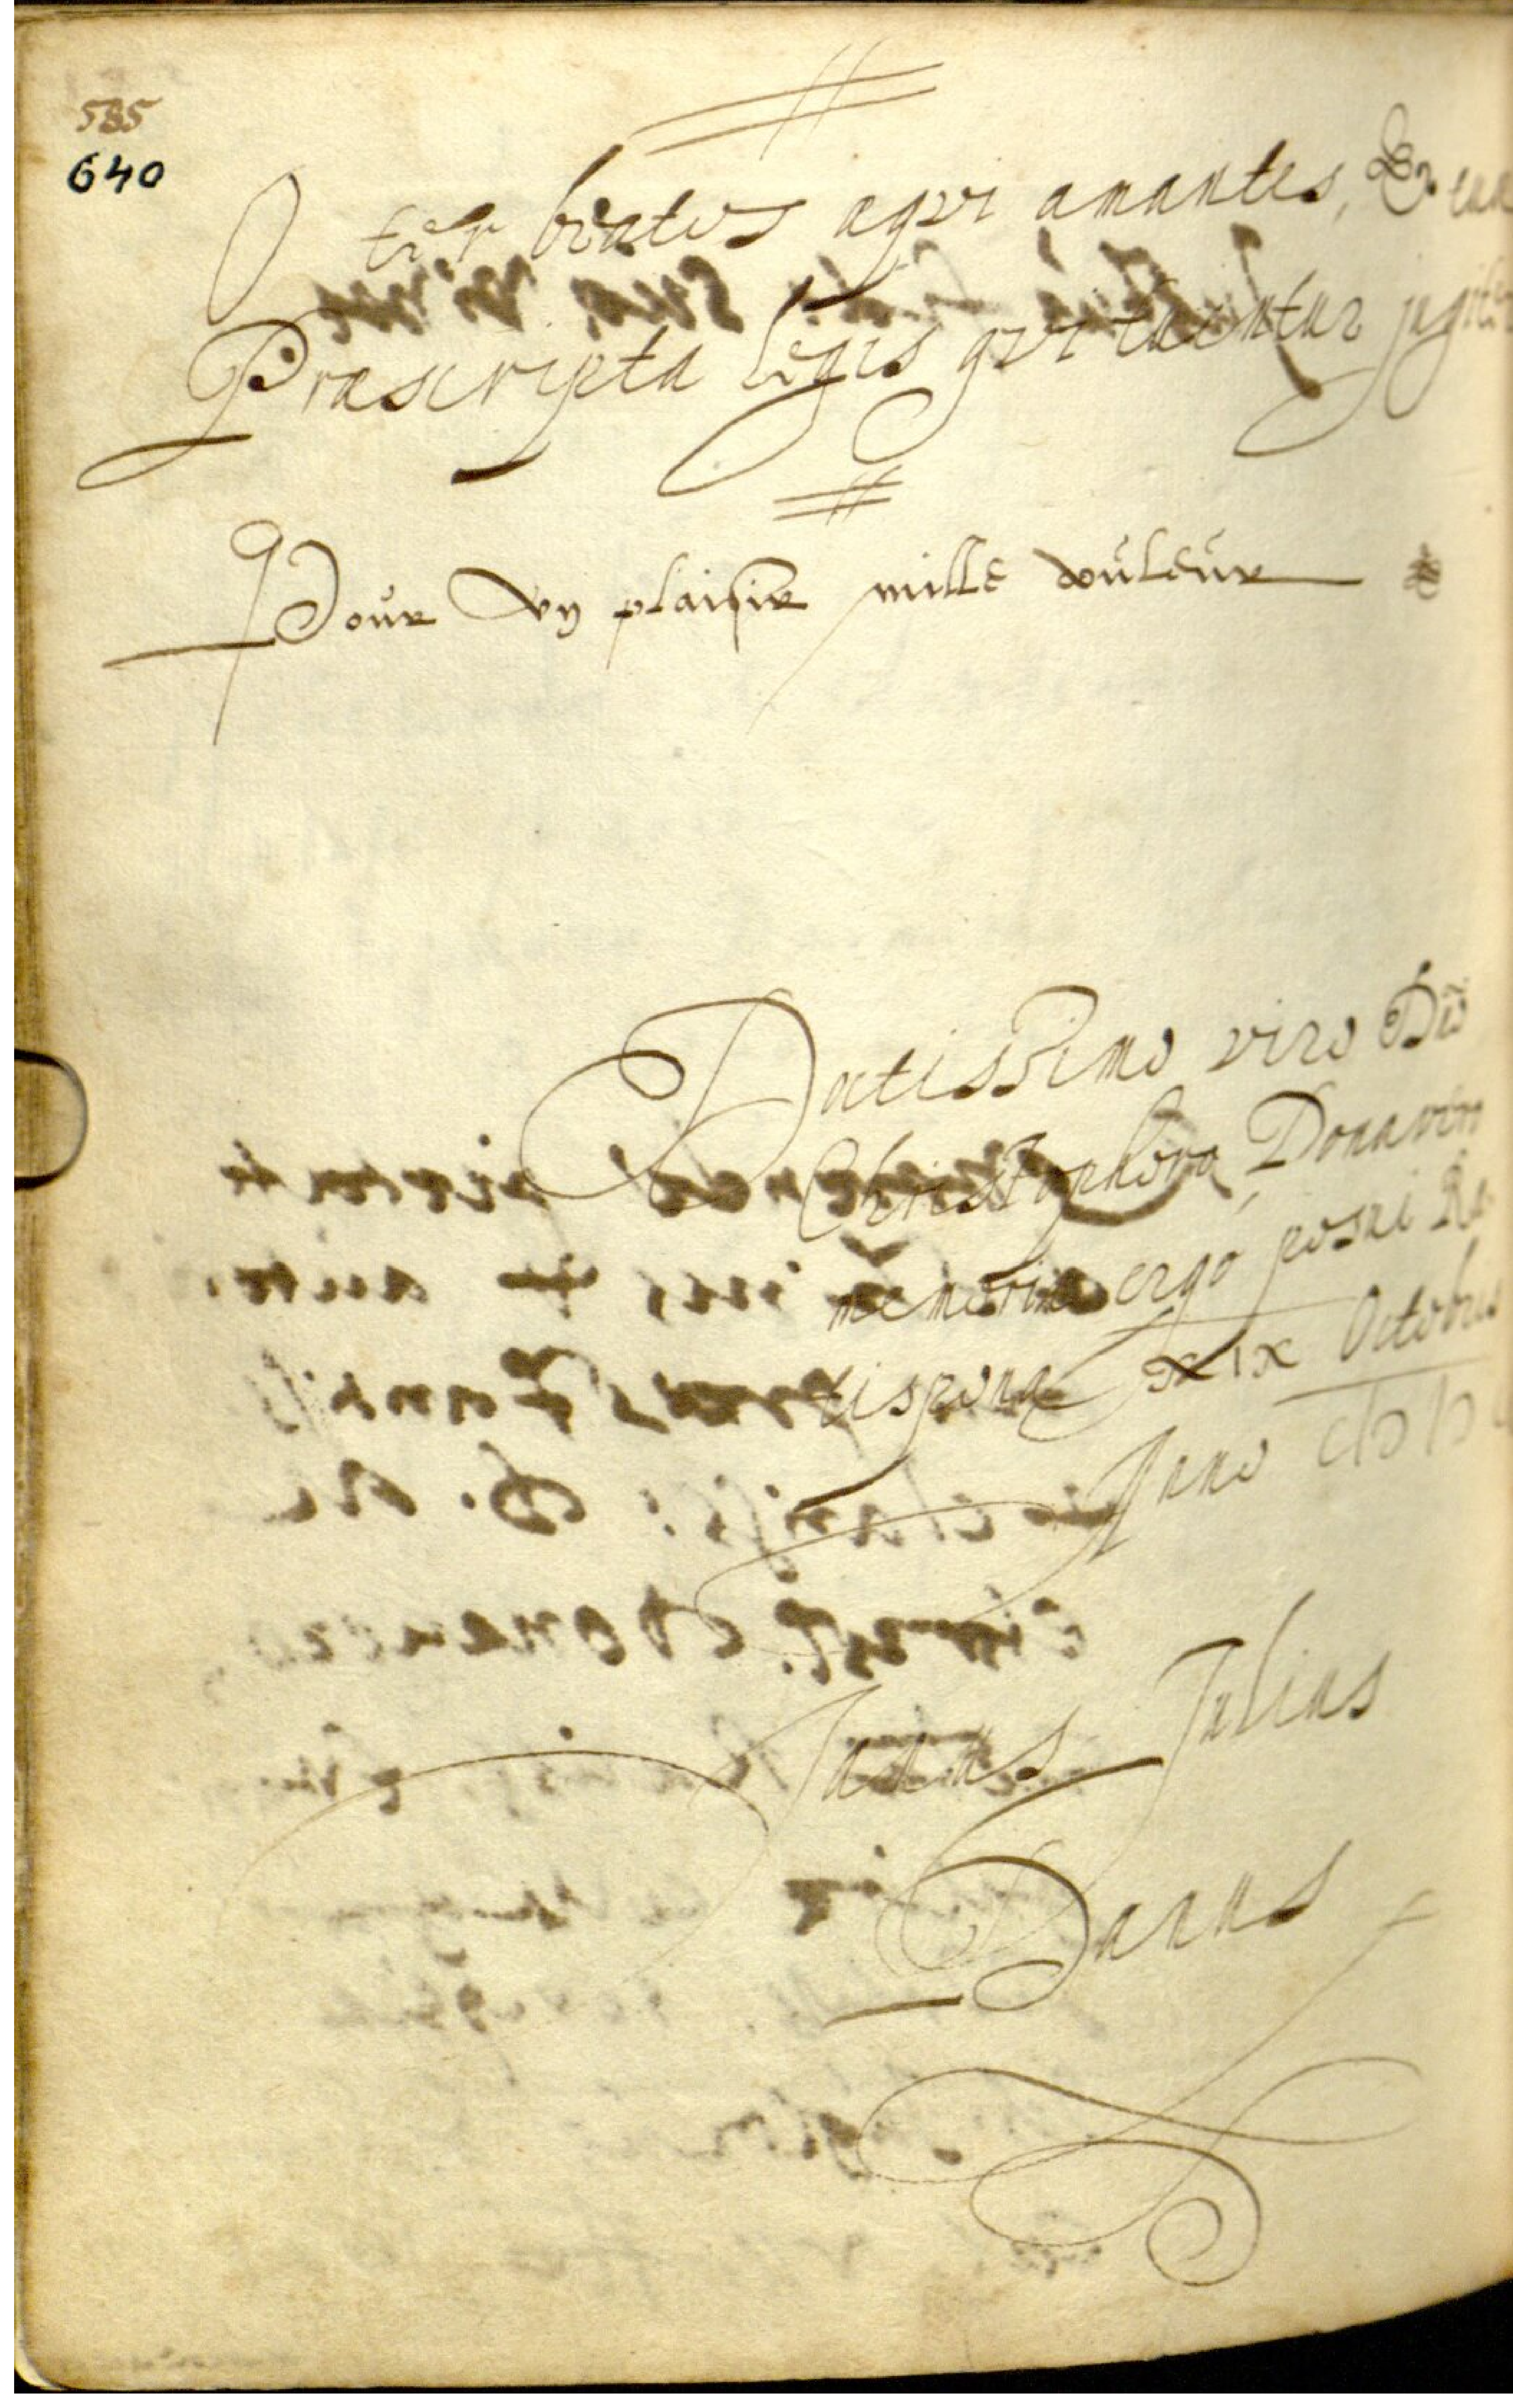 585
640
O ter beatos agni amantes, &
Præscripta legis qui tuentur jugiter
Pour vn plaisir mille douleur
Doctissimo viro Dño
Christophoro Donavero
memoriæ ergo posui Ra-
tisponæ XIX Octobris
Anno
Janus Julius
Danus